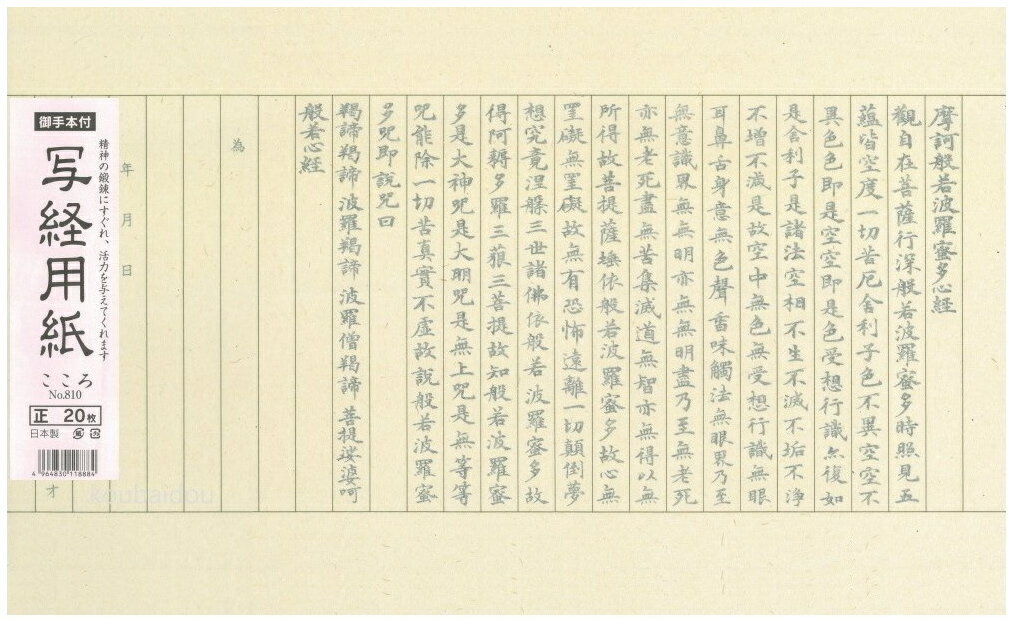 摩訶般若波羅蜜多心経
觀自在菩薩行深般若波羅蜜多時照見五
蘊皆空度一切苦厄舍利子色不異空空不
異色色即是空空即是色受想行識亦復如
是舍利子是諸法空相不生不滅不垢不淨
不增不減是故空中無色無受想行識無眼
耳鼻舌身意無色聲香味觸法無眼界乃至
無意識界無無明亦無無明盡乃至無老死
亦無老死盡無苦集滅道無智亦無得以無
所得故菩提薩埵依般若波羅蜜多故心無
罣礙無罣礙故無有恐怖遠離一切顛倒夢
想究竟涅槃三世諸佛依般若波羅蜜多故
得阿耨多羅三藐三菩提故知般若波羅蜜
多是大神咒是大明咒是無上咒是無等等
咒能除一切苦真實不虛故說般若波羅蜜
多咒即說咒曰
羯諦羯諦 波羅羯諦 波羅僧羯諦 菩提娑婆呵
般若心経
為
年 月 日
御手本付
精神の鍛錬にすぐれ、活力を与えてくれます
写経用紙
こころ
No.810
正 20枚
日本製 紙 プラ
4 964830 118884
koubaidou